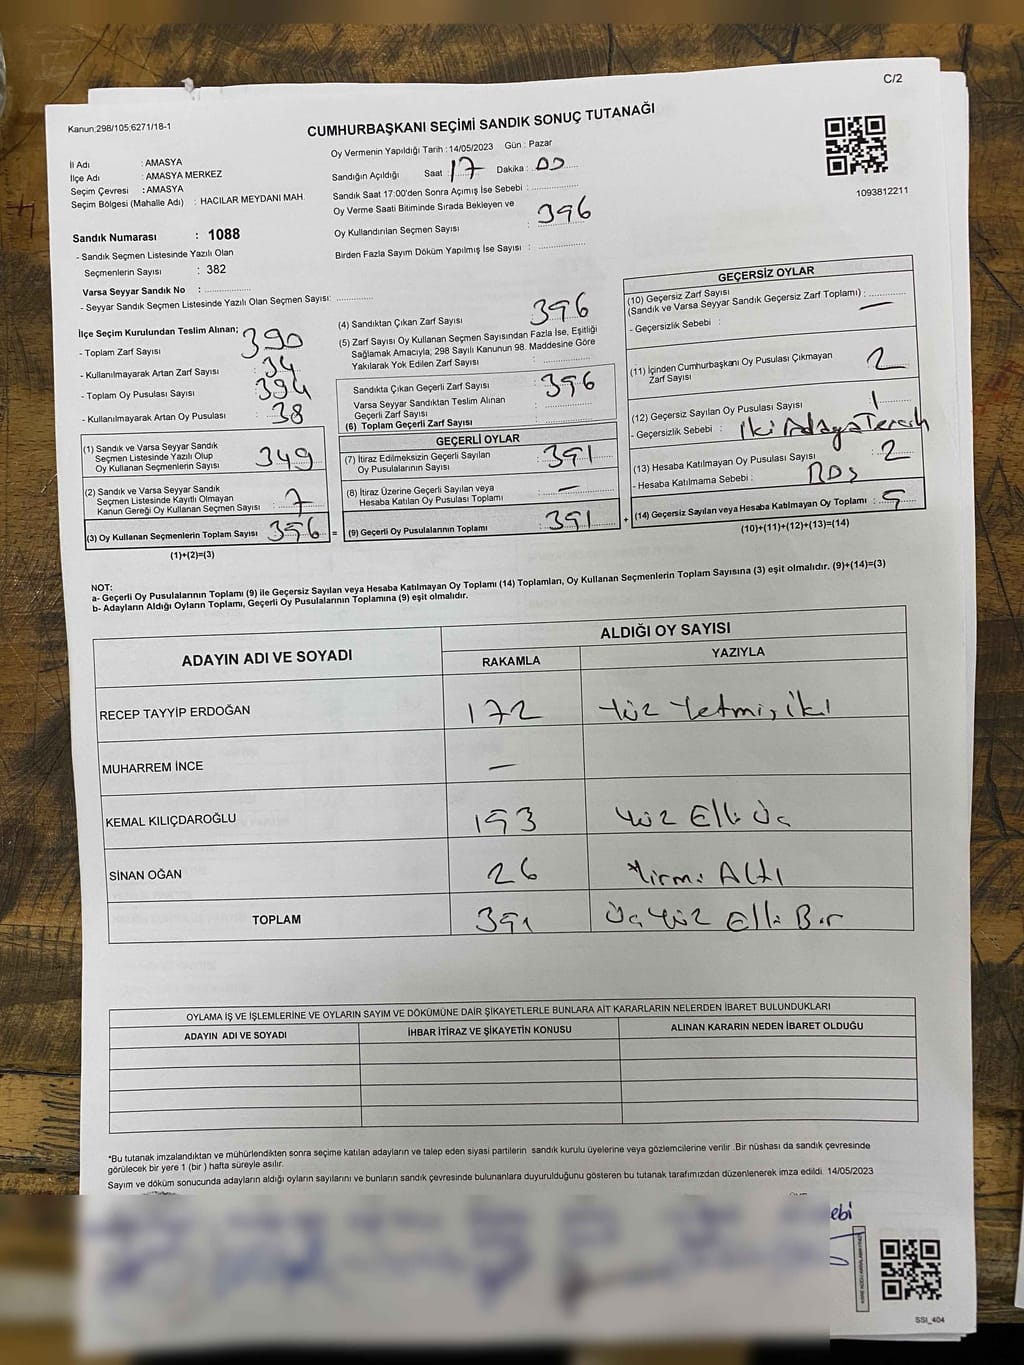 C/2
Kanun;298/105;6271/18-1
CUMHURBAŞKANI SEÇİMİ SANDIK SONUÇ TUTANAĞI
İl Adı : AMASYA
İlçe Adı : AMASYA MERKEZ
Seçim Çevresi : AMASYA
Seçim Bölgesi (Mahalle Adı) : HACILAR MEYDANI MAH.
Oy Vermenin Yapıldığı Tarih : 14/05/2023 Gün : Pazar
Sandığın Açıldığı Saat : 17 Dakika : 00
Sandık Saat 17:00'den Sonra Açımış İse Sebebi : ..................
Oy Verme Saati Bitiminde Sırada Bekleyen ve
Oy Kullandırılan Seçmen Sayısı : 356
Birden Fazla Sayım Döküm Yapılmış İse Sayısı : ..................
1093812211
Sandık Numarası : 1088
- Sandık Seçmen Listesinde Yazılı Olan
Seçmenlerin Sayısı : 382
Varsa Seyyar Sandık No : ..................
- Seyyar Sandık Seçmen Listesinde Yazılı Olan Seçmen Sayısı: ..................
İlçe Seçim Kurulundan Teslim Alınan;
- Toplam Zarf Sayısı : 390
- Kullanılmayarak Artan Zarf Sayısı : 34
- Toplam Oy Pusulası Sayısı : 394
- Kullanılmayarak Artan Oy Pusulası : 38
(1) Sandık ve Varsa Seyyar Sandık
Seçmen Listesinde Yazılı Olup
Oy Kullanan Seçmenlerin Sayısı : 349
(2) Sandık ve Varsa Seyyar Sandık
Seçmen Listesinde Kayıtlı Olmayan
Kanun Gereği Oy Kullanan Seçmen Sayısı : 7
(3) Oy Kullanan Seçmenlerin Toplam Sayısı : 356 =
(1)+(2)=(3)
(4) Sandıktan Çıkan Zarf Sayısı : 356
(5) Zarf Sayısı Oy Kullanan Seçmen Sayısından Fazla İse, Eşitliği
Sağlamak Amacıyla; 298 Sayılı Kanunun 98. Maddesine Göre
Yakılarak Yok Edilen Zarf Sayısı : ..................
Sandıkta Çıkan Geçerli Zarf Sayısı : 356
Varsa Seyyar Sandıktan Teslim Alınan
Geçerli Zarf Sayısı : ..................
(6) Toplam Geçerli Zarf Sayısı : ..................
GEÇERLİ OYLAR
(7) İtiraz Edilmeksizin Geçerli Sayılan
Oy Pusulalarının Sayısı : 351
(8) İtiraz Üzerine Geçerli Sayılan veya
Hesaba Katılan Oy Pusulası Toplamı : —
(9) Geçerli Oy Pusulalarının Toplamı : 351 +
GEÇERSİZ OYLAR
(10) Geçersiz Zarf Sayısı
(Sandık ve Varsa Seyyar Sandık Geçersiz Zarf Toplamı) : —
- Geçersizlik Sebebi :
(11) İçinden Cumhurbaşkanı Oy Pusulası Çıkmayan
Zarf Sayısı : 2
(12) Geçersiz Sayılan Oy Pusulası Sayısı : 1
- Geçersizlik Sebebi : İki Adaya Tercih
(13) Hesaba Katılmayan Oy Pusulası Sayısı : 2
- Hesaba Katılmama Sebebi : BOŞ
(14) Geçersiz Sayılan veya Hesaba Katılmayan Oy Toplamı : 5
(10)+(11)+(12)+(13)=(14)
NOT:
a- Geçerli Oy Pusulalarının Toplamı (9) ile Geçersiz Sayılan veya Hesaba Katılmayan Oy Toplamı (14) Toplamları, Oy Kullanan Seçmenlerin Toplam Sayısına (3) eşit olmalıdır. (9)+(14)=(3)
b- Adayların Aldığı Oyların Toplamı, Geçerli Oy Pusulalarının Toplamına (9) eşit olmalıdır.
ADAYIN ADI VE SOYADI
ALDIĞI OY SAYISI
RAKAMLA YAZIYLA
RECEP TAYYİP ERDOĞAN 172 Yüz Yetmiş iki
MUHARREM İNCE —
KEMAL KILIÇDAROĞLU 153 Yüz Elli Üç
SİNAN OĞAN 26 Yirmi Altı
TOPLAM 351 Üç Yüz Elli Bir
OYLAMA İŞ VE İŞLEMLERİNE VE OYLARIN SAYIM VE DÖKÜMÜNE DAİR ŞİKAYETLERLE BUNLARA AİT KARARLARIN NELERDEN İBARET BULUNDUKLARI
ADAYIN ADI VE SOYADI İHBAR İTİRAZ VE ŞİKAYETİN KONUSU ALINAN KARARIN NEDEN İBARET OLDUĞU
*Bu tutanak imzalandıktan ve mühürlendikten sonra seçime katılan adayların ve talep eden siyasi partilerin sandık kurulu üyelerine veya gözlemcilerine verilir .Bir nüshası da sandık çevresinde
görülecek bir yere 1 (bir ) hafta süreyle asılır.
Sayım ve döküm sonucunda adayların aldığı oyların sayılarını ve bunların sandık çevresinde bulunanlara duyurulduğunu gösteren bu tutanak tarafımızdan düzenlenerek imza edildi. 14/05/2023
ebi
SSI_404